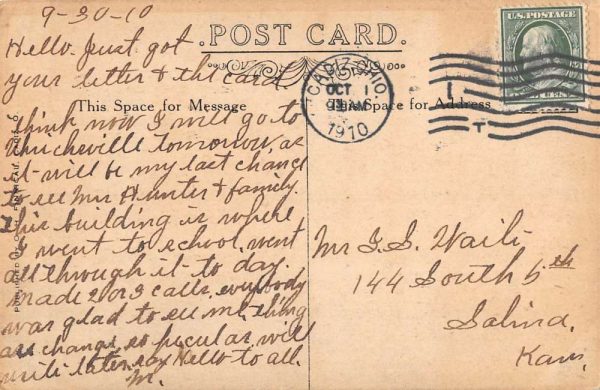 9-30-10
Hello. Just got
your letter & the card
POST CARD.
U.S. POSTAGE
CADIZ, OHIO
OCT 1
AM
1910
This Space for Message
This Space for Address
think now I will go to
tomorrow, as
it will be my last chance
to see Mrs Hunter & family.
This building is where
I went to school, went
all through it to day.
made 2 or 3 calls, everybody
was glad to see me, things
are change, so will
write later, say Hello to all.
M.
Mr
144 South 5th
Salina,
Kans,